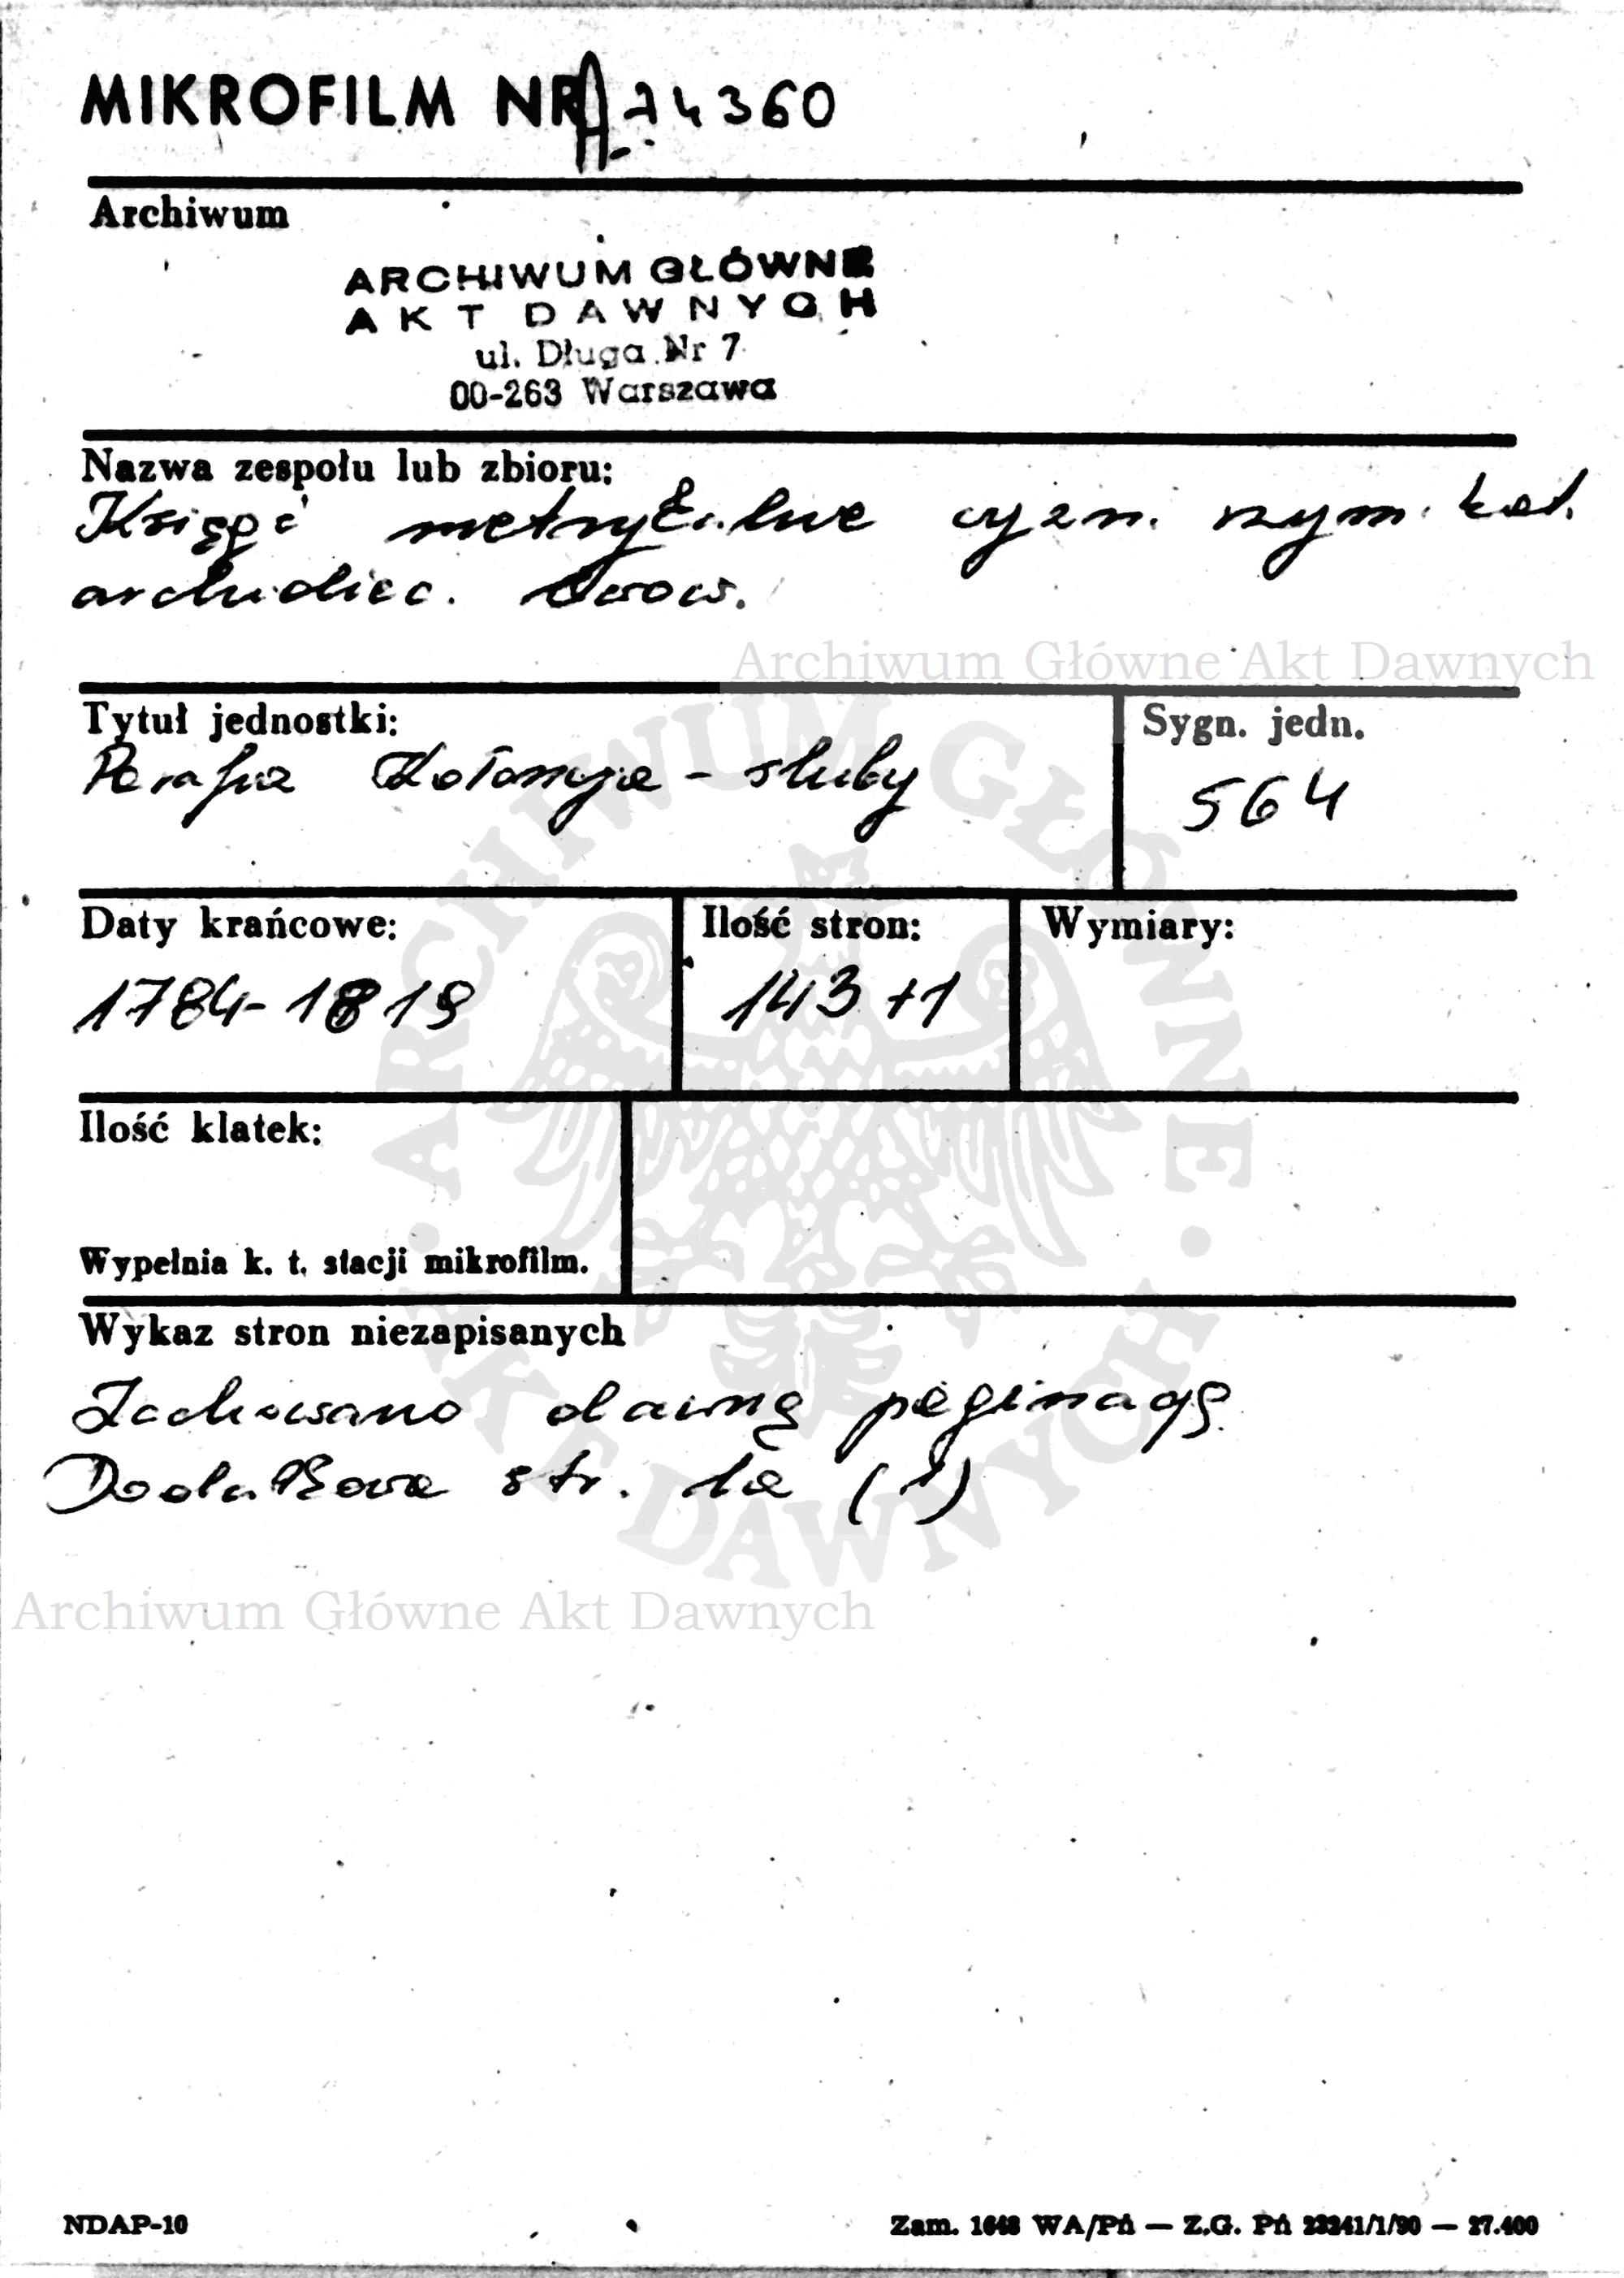 MIKROFILM NR A-74360
Archiwum
ARCHIWUM GŁÓWNE
AKT DAWNYCH
ul. Długa Nr 7
00-263 Warszawa
Nazwa zespołu lub zbioru:
Księgi metrykalne wyzn. rzym. kat.
archidiec. Lwow.
Archiwum Główne Akt Dawnych
Tytuł jednostki:
Parafia Kołomyja - śluby
Sygn. jedn.
564
Daty krańcowe:
1784-1819
Ilość stron:
143+1
Wymiary:
Ilość klatek:
Wypełnia k. t. stacji mikrofilm.
Wykaz stron niezapisanych
Zachowano dawną paginację
Dodatkowa str. 1a (1)
ARCHIWUM GŁÓWNE
AKT DAWNYCH
Archiwum Główne Akt Dawnych
NDAP-10
Zam. 1648 WA/Pń — Z.G. Pń 23241/1/90 — 27.400